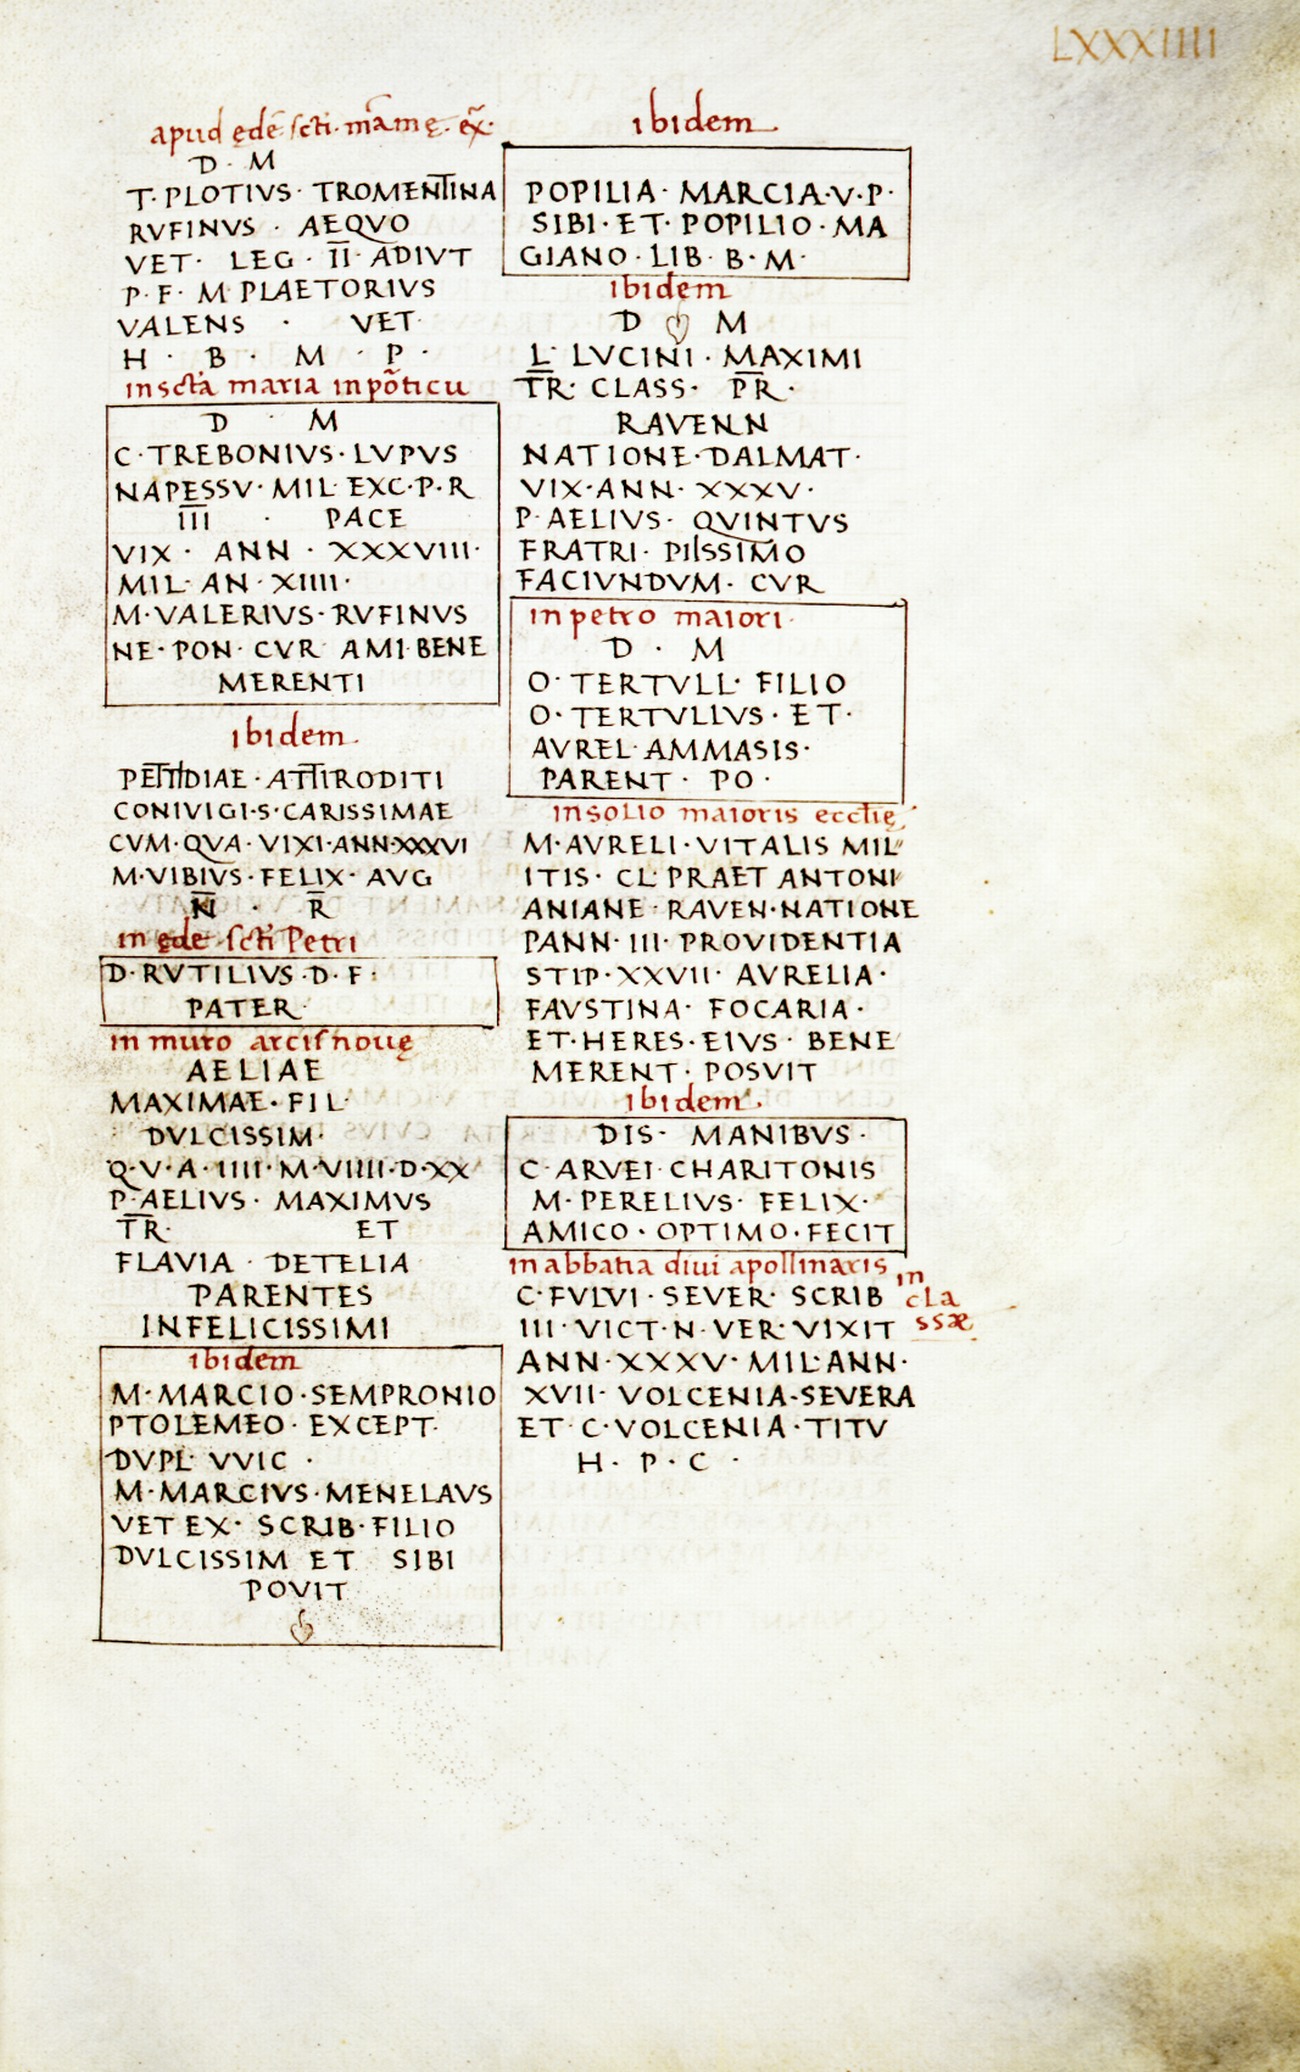 LXXXIIII
apud ędē scti· māmę· ex̄·
D · M
T· PLOTIVS · TROMENTINA
RVFINVS · AEQVO
VET · LEG · I̅I̅ · ADIVT
P · F · M PLAETORIVS
VALENS · VET·
H · B · M · P ·
in scta maria in põticu
D · M
C · TREBONIVS · LVPVS
NAPESSV · MIL· EXC · P · R
I̅I̅I̅ · PACE
VIX · ANN · XXXVIII·
MIL· AN · XIIII·
M · VALERIVS · RVFINVS
NE · PON · CVR AMI· BENE
MERENTI
ibidem·
CONIVIGI · S · CARISSIMAE
CVM · QVA · VIXI · ANN · XXXVI
M · VIBIVS · FELIX · AVG
N̅ · R̅
in ęde scti Petri
D · RVTILIVS · D · F ·
PATER·
in muro arcis nouę
AELIAE
MAXIMAE · FIL·
DVLCISSIM·
Q · V · A · IIII · M · VIIII · D · XX
P · AELIVS · MAXIMVS
T̅R̅· ET
FLAVIA · DETELIA
PARENTES
INFELICISSIMI
ibidem
M · MARCIO · SEMPRONIO
PTOLEMEO · EXCEPT·
DVPL· VVIC ·
M · MARCIVS · MENELAVS
VET EX · SCRIB · FILIO
DVLCISSIM ET SIBI
POVIT
ibidem·
POPILIA · MARCIA · V · P ·
SIBI · ET · POPILIO · MA
GIANO · LIB · B · M ·
ibidem
D M
L· LVCINI · MAXIMI
T̅R̅· CLASS · P̅R̅·
RAVENN
NATIONE · DALMAT·
VIX · ANN · XXXV ·
P · AELIVS · QVINTVS
FRATRI · PIISSIMO
FACIVNDVM · CVR
in petro maiori·
D · M
O · TERTVLL· FILIO
O · TERTVLLVS · ET ·
AVREL· AMMASIS ·
PARENT · PO ·
in solio maioris ecctię
M · AVRELI · VITALIS MIL
ITIS · CL· PRAET ANTONI
ANIANE · RAVEN · NATIONE
PANN · III · PROVIDENTIA
STIP · XXVII · AVRELIA ·
FAVSTINA · FOCARIA ·
ET · HERES · EIVS · BENE
MERENT · POSVIT
ibidem·
DIS · MANIBVS ·
C · ARVEI · CHARITONIS
M · PERELIVS · FELIX ·
AMICO · OPTIMO · FECIT
in abbatia diui apollinaris in
classæ
C · FVLVI · SEVER · SCRIB
III · VICT · N · VER · VIXIT
ANN · XXXV · MIL· ANN ·
XVII · VOLCENIA · SEVERA
ET · C · VOLCENIA · TITV
H · P · C ·